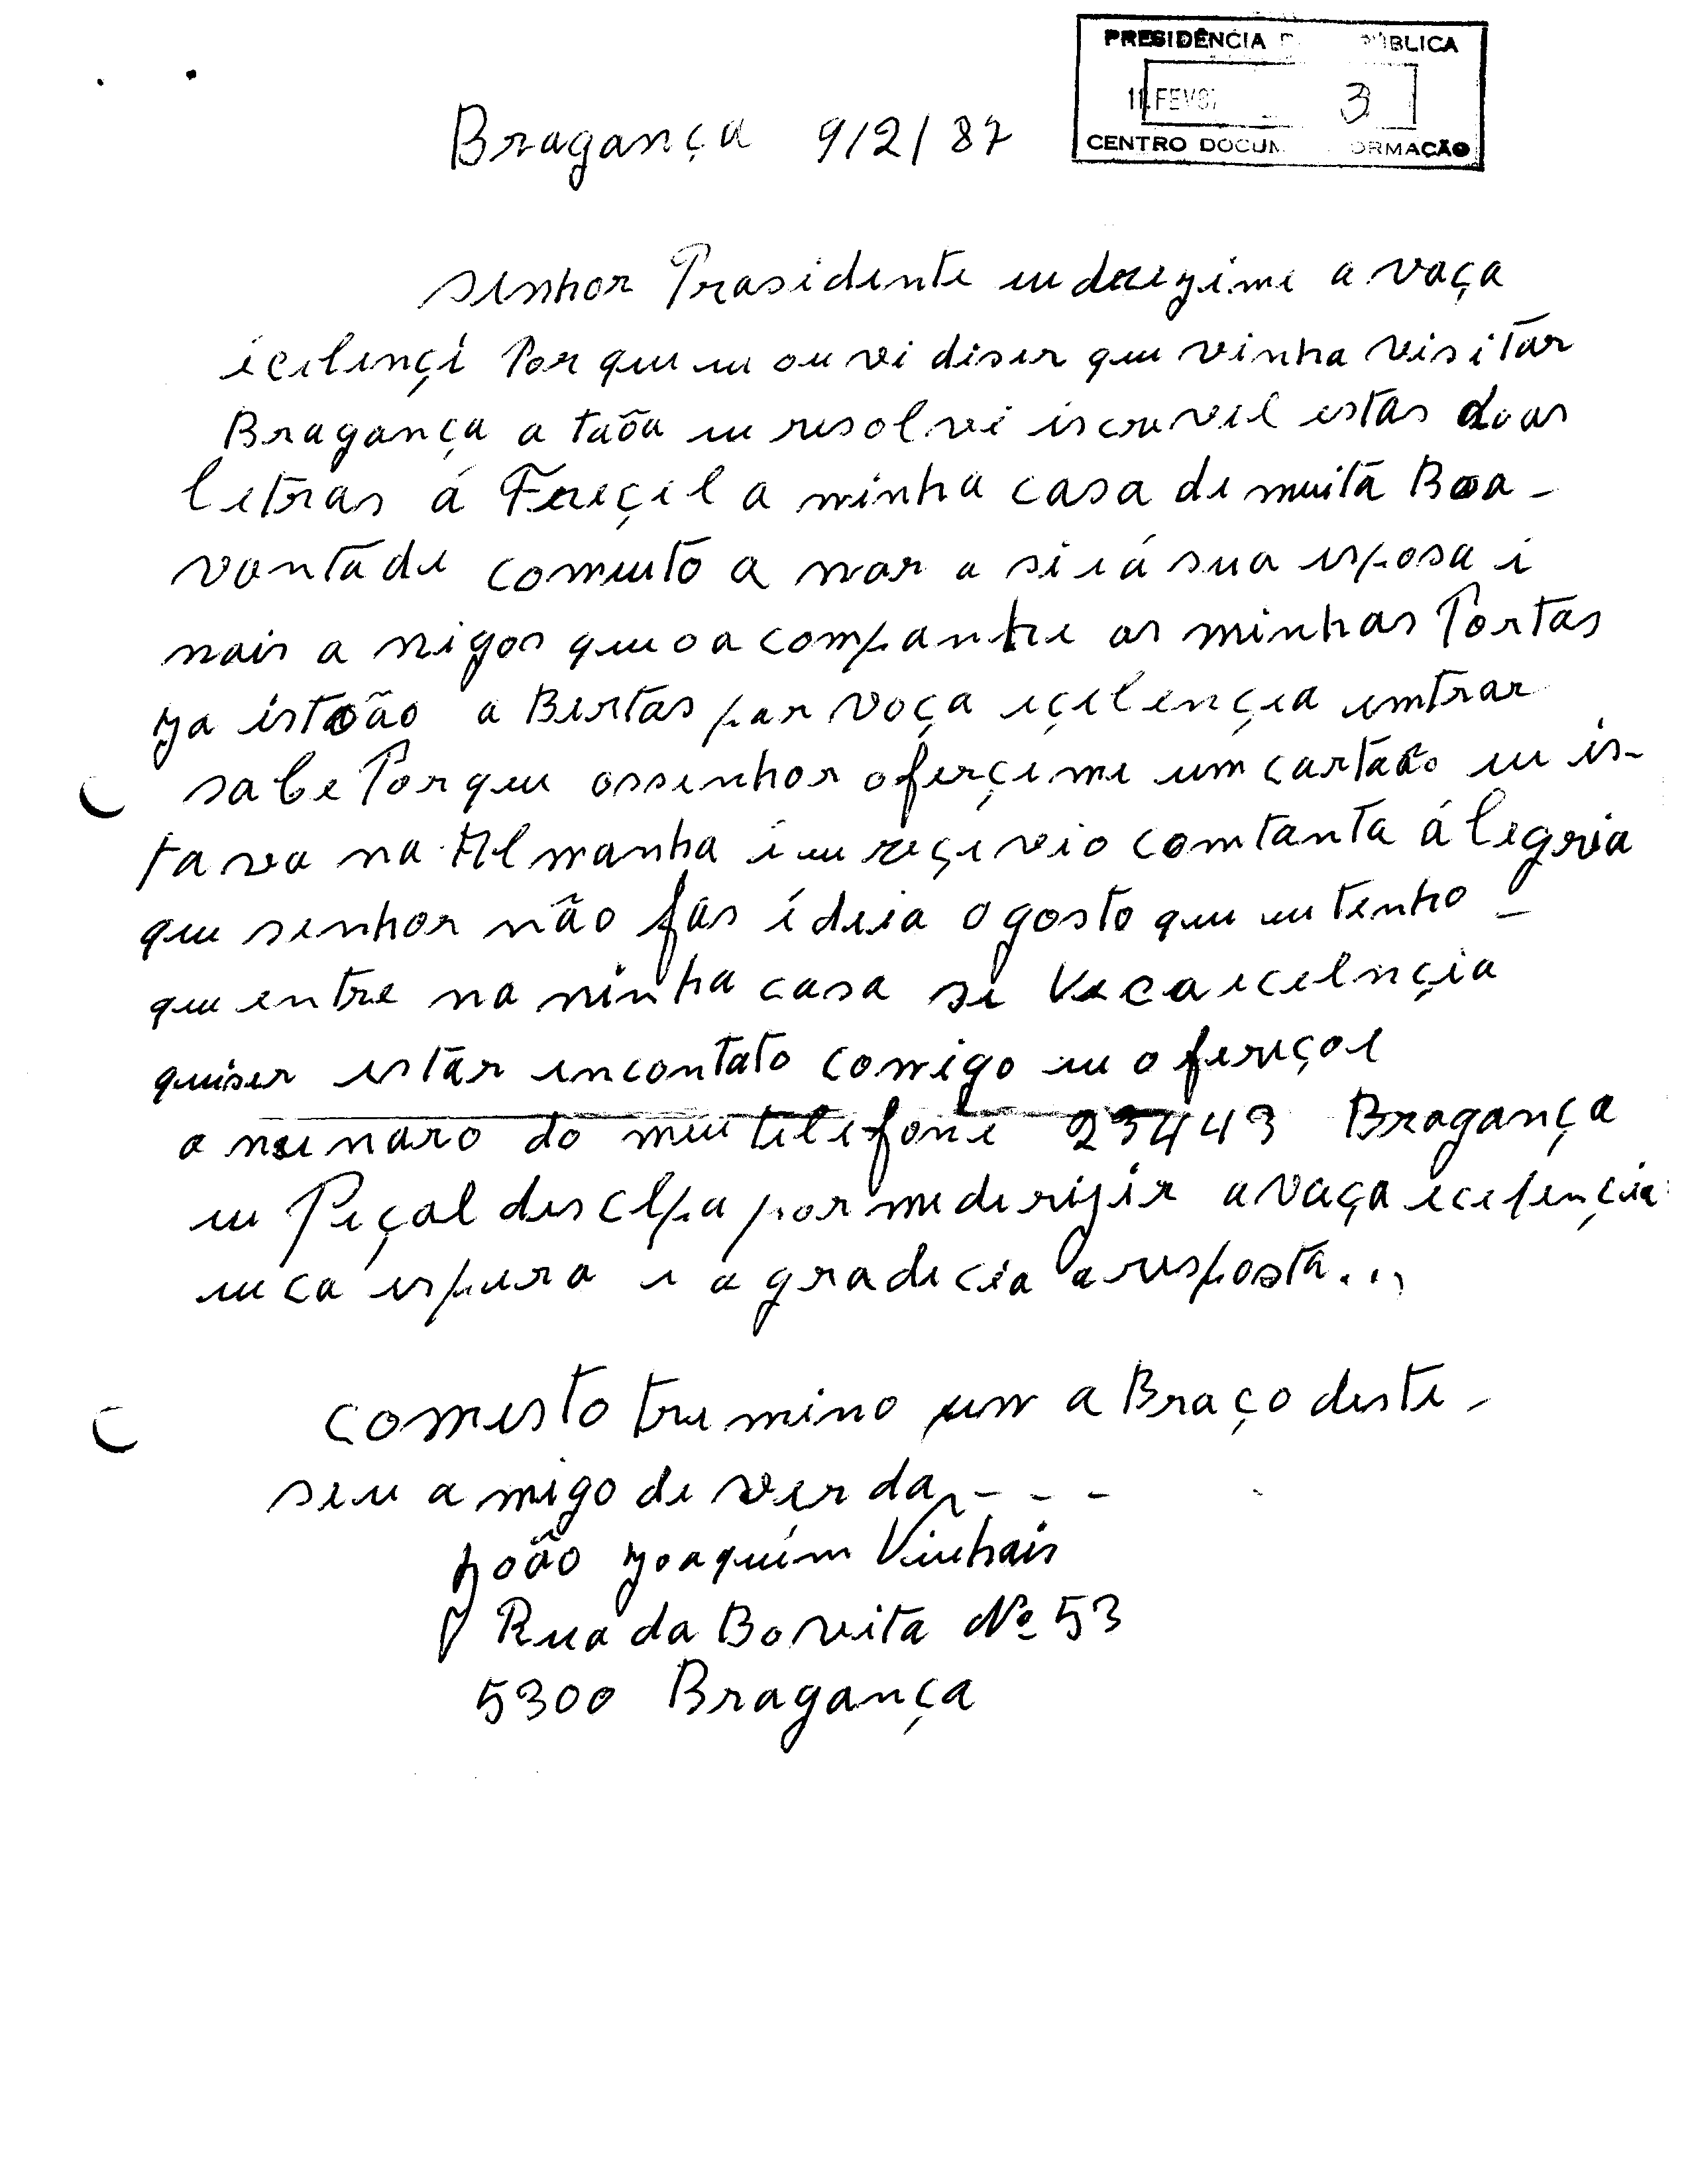 PRESIDÊNCIA D ÚBLICA
11 FEV 87 3
CENTRO DOCUM ORMAÇÃO
Bragança 9/2/87
senhor Prasidente eu derezime a vaça
icilençi Por que eu ou vi diser que vinha visitar
Bragança a tãoa eu resolvi iscrevel estas doas
letras á Fereçel a minha casa de muita Boa-
vontade comuito a mor a si i á sua esposa i
mais a migos que o a companhe as minhas Portas
ja istoão a Bertas par voça eçilençia emtrar
sabe Porque ossenhor oferçime um cartão eu is-
tava na Almanha i eu reçivio comtanta álegria
que senhor não fas ideia o gosto que eu tenho -
que entre na minha casa se Vaca ecelnçia
quiser estar encontato comigo eu o fereçol
o numaro do meu telefone 23443 Bragança
eu Peçal desclpa por mederigir a vaça ecelençia
eu ca espero e a gradicia a resposta...
comesto tremino um a Braço deste -
seu amigo de verda - - -
João Joaquim Vinhais
Rua da Boavista Nº 53
5300 Bragança